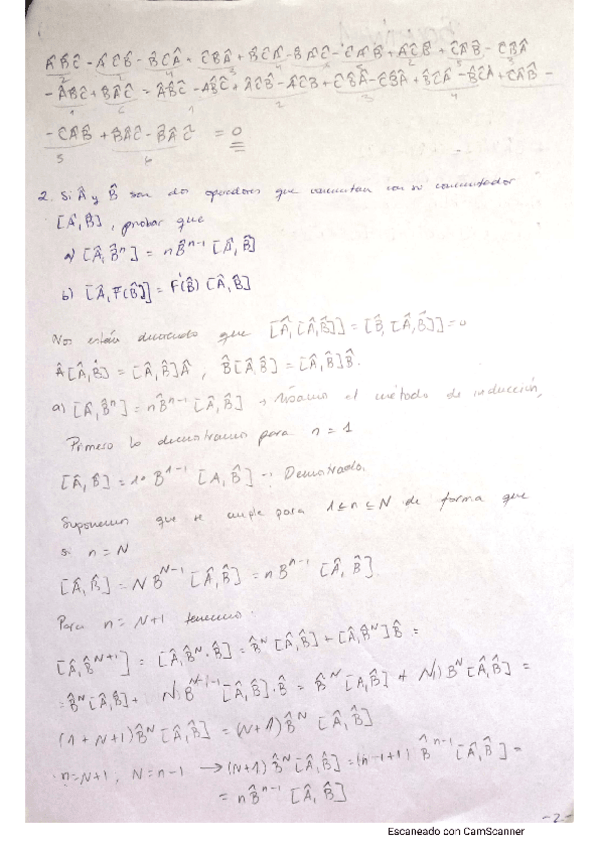 ÂB̂Ĉ - ÂĈB̂ - B̂ĈÂ + ĈB̂Â + B̂ĈÂ - B̂ÂĈ - ĈÂB̂ + ÂĈB̂ + ĈÂB̂ - ĈB̂Â
- ÂB̂Ĉ + B̂ÂĈ = ÂB̂Ĉ - ÂB̂Ĉ + ÂĈB̂ - ÂĈB̂ + ĈB̂Â - ĈB̂Â + B̂ĈÂ - B̂ĈÂ + ĈÂB̂ -
- ĈÂB̂ + B̂ÂĈ - B̂ÂĈ = 0
2. Si Â y B̂ son dos operadores que conmutan con su conmutador
[Â,B̂], probar que
a) [Â,B̂ⁿ] = nB̂ⁿ⁻¹ [Â,B̂]
b) [Â,F(B̂)] = F'(B̂) [Â,B̂]
Nos están diciendo que [Â,[Â,B̂]] = [B̂,[Â,B̂]] = 0
Â[Â,B̂] = [Â,B̂]Â , B̂[Â,B̂] = [Â,B̂]B̂.
a) [Â,B̂ⁿ] = nB̂ⁿ⁻¹ [Â,B̂] → Usamos el método de inducción,
Primero lo demostramos para n = 1
[Â,B̂] = 1· B¹⁻¹ [A,B̂] → Demostrado.
Suponemos que se cumple para 1 ≤ n ≤ N de forma que
si n = N
[Â,B̂] = N Bᴺ⁻¹ [Â,B̂] = n Bⁿ⁻¹ [Â,B̂]
Para n = N+1 tenemos:
[Â,B̂ᴺ⁺¹] = [Â,B̂ᴺ·B̂] = B̂ᴺ [Â,B̂] + [Â,B̂ᴺ] B̂ =
= B̂ᴺ [Â,B̂] + N Bᴺ⁻¹ [Â,B̂]·B̂ = B̂ᴺ [A,B̂] + N Bᴺ [Â,B̂] =
(1+N+1) B̂ᴺ [Â,B̂] = (N+1) B̂ᴺ [Â,B̂]
n=N+1, N=n-1 → (N+1) B̂ᴺ [Â,B̂] = (n-1+1) B̂ⁿ⁻¹ [Â,B̂] =
= nB̂ⁿ⁻¹ [Â,B̂]
-2-
Escaneado con CamScanner